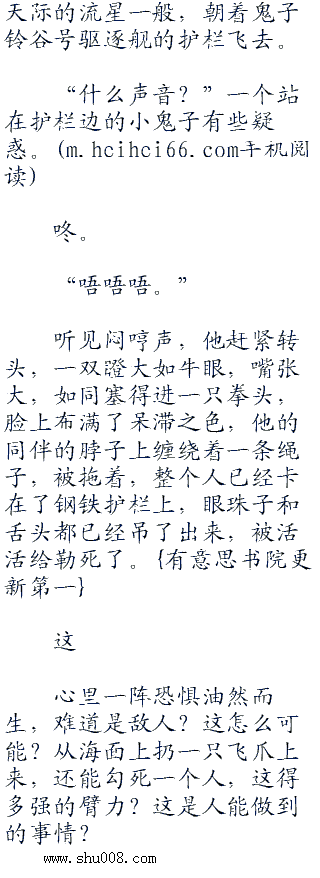 天际的流星一般，朝着鬼子
铃谷号驱逐舰的护栏飞去。
“什么声音？”一个站
在护栏边的小鬼子有些疑
惑。(m.hcihci66.com手机阅
读)
咚。
“唔唔唔。”
听见闷哼声，他赶紧转
头，一双瞪大如牛眼，嘴张
大，如同塞得进一只拳头，
脸上布满了呆滞之色，他的
同伴的脖子上缠绕着一条绳
子，被拖着，整个人已经卡
在了钢铁护栏上，眼珠子和
舌头都已经吊了出来，被活
活给勒死了。{有意思书院更
新第一}
这
心里一阵恐惧油然而
生，难道是敌人？这怎么可
能？从海面上扔一只飞爪上
来，还能勾死一个人，这得
多强的臂力？这是人能做到
的事情？
www.shu008.com